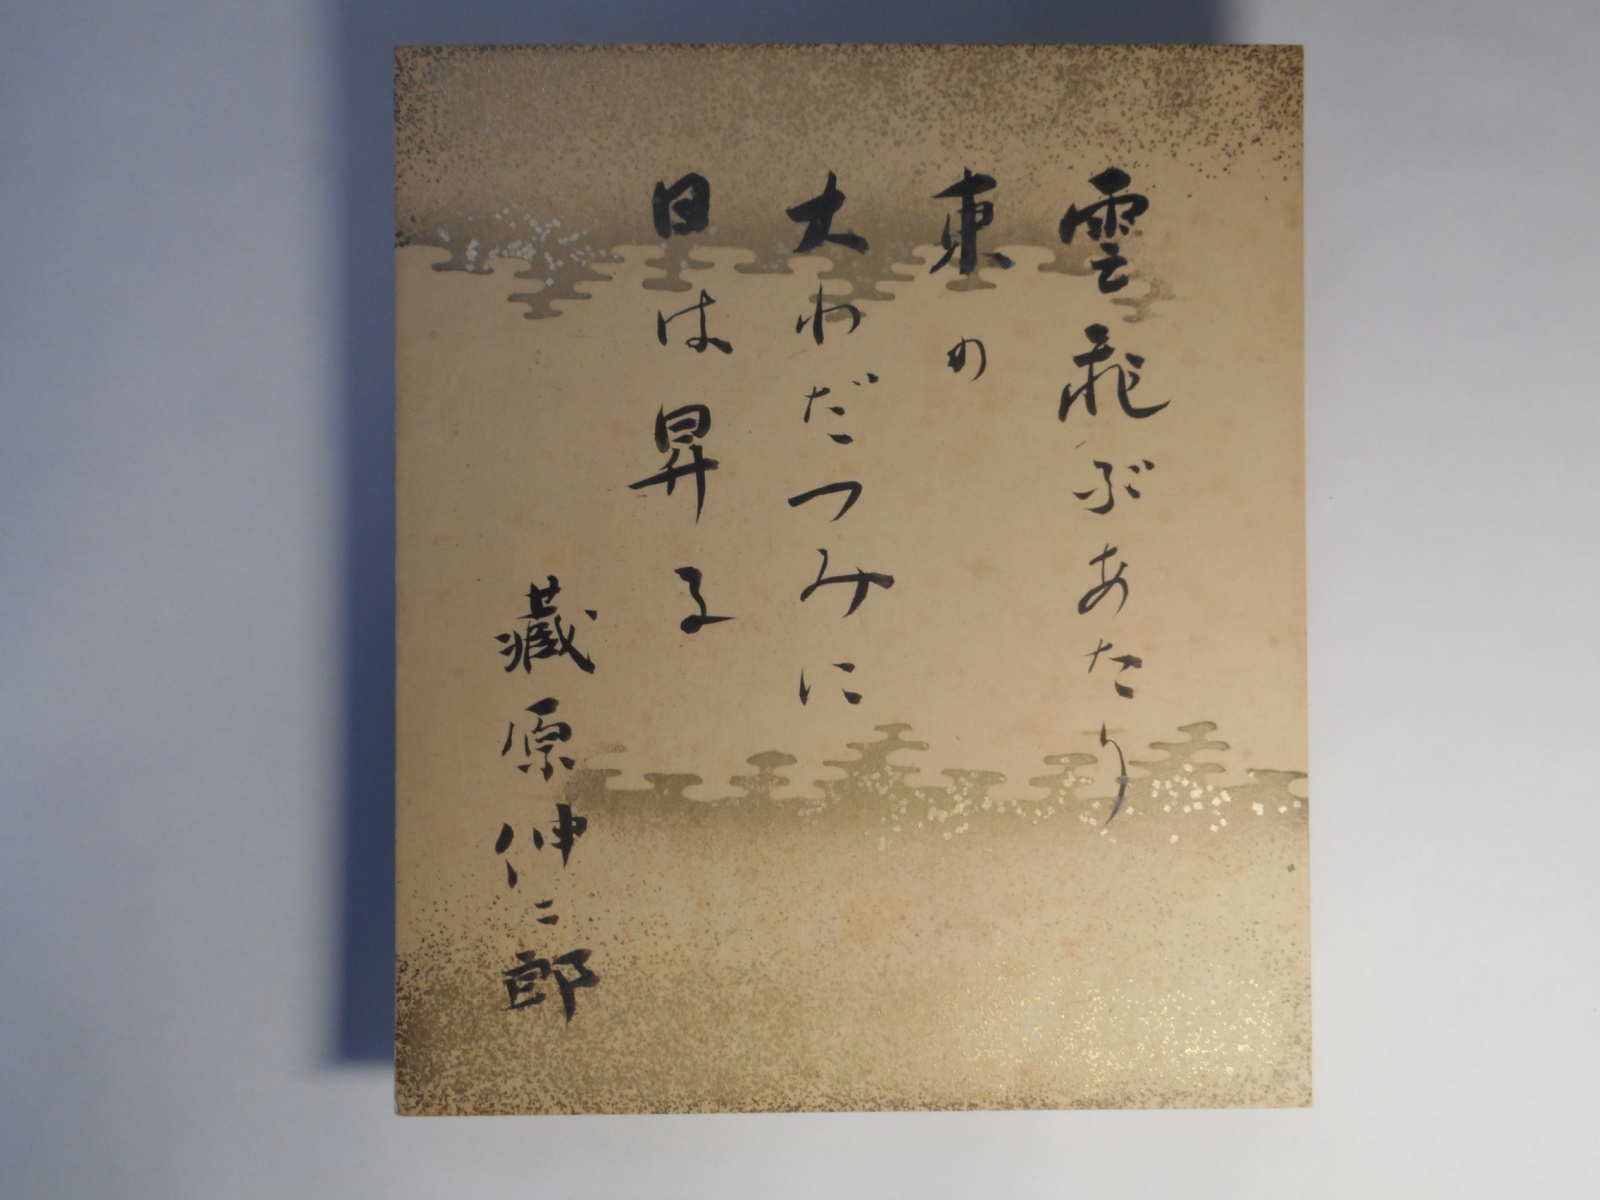 雲飛ぶあたり
東の
大わだつみに
日は昇る
蔵原伸二郎